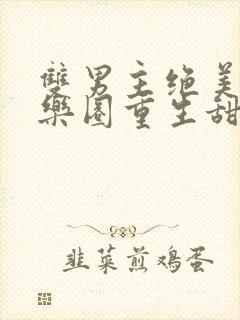 雙男主绝美
樂圈重生甜
韭菜煎鸡蛋